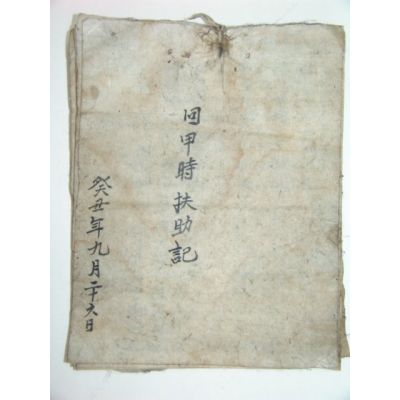 回甲時扶助記
癸丑年九月二十六日